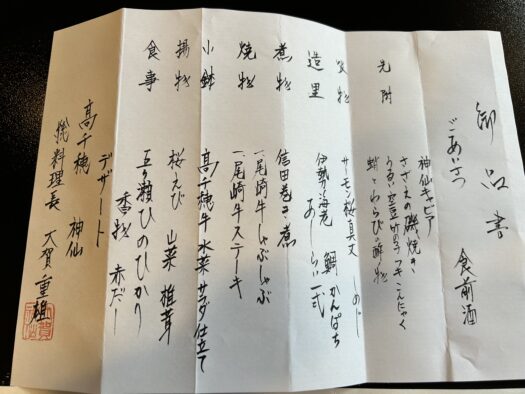 御品書
ごあいさつ 食前酒
先附 神仙キャビア
さざえの磯焼き
うるい 空豆 竹の子 つきこんにゃく
蛸とわらびの酢物
吸物 サーモン桜真丈 しめじ
造里 伊勢海老 鯛 かんぱち
あしらい一式
煮物 信田巻き煮
一、尾崎牛しゃぶしゃぶ
焼物 一、尾崎牛ステーキ
小鉢 高千穂牛 水菜 サラダ仕立て
揚物 桜えび 山菜 椎茸
食事 五ヶ瀬ひのひかり
香物 赤だし
デザート
高千穂 神仙
総料理長 大賀重祖